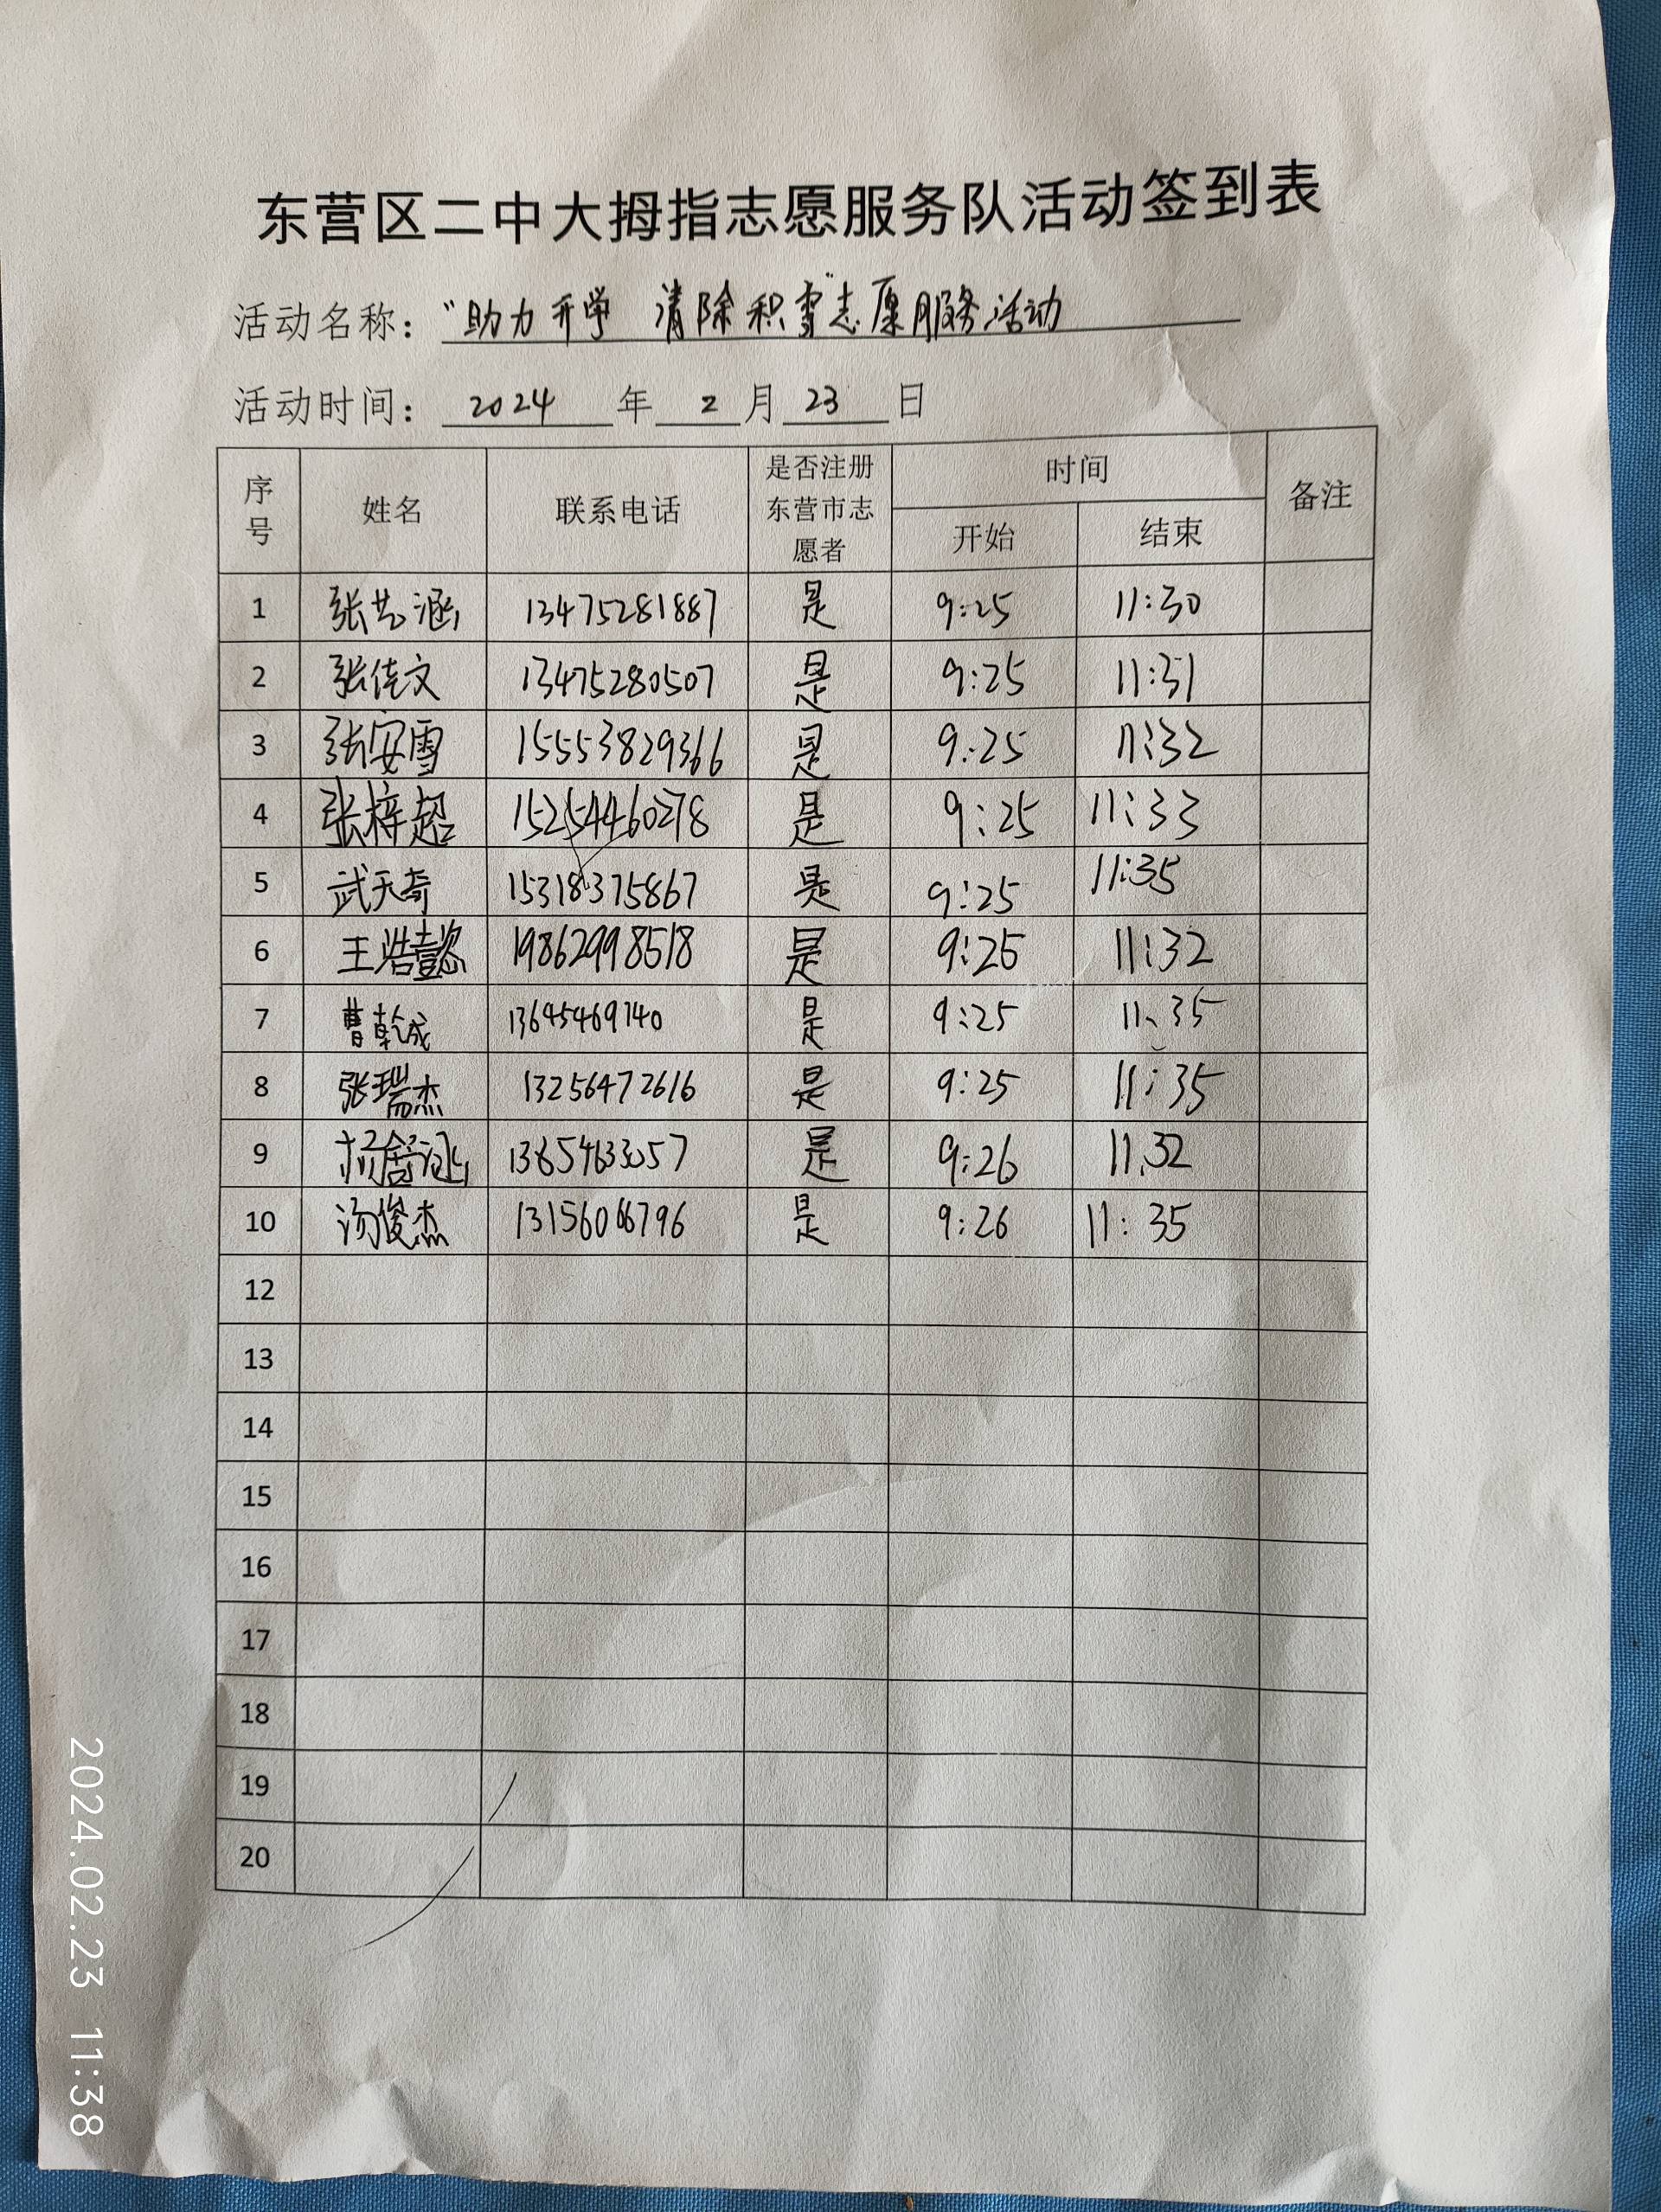 东营区二中大拇指志愿服务队活动签到表
活动名称：“助力开学 清除积雪”志愿服务活动
活动时间： 2024 年 2 月 23 日
序号 姓名 联系电话 是否注册东营市志愿者 时间 备注
开始 结束
1 张艺涵 13475281887 是 9:25 11:30
2 张佳文 13475280507 是 9:25 11:31
3 张安雪 15553829366 是 9:25 11:32
4 张梓超 15254460278 是 9:25 11:33
5 武天奇 15318375867 是 9:25 11:35
6 王浩懿 19862998518 是 9:25 11:32
7 曹乾成 13695469740 是 9:25 11:35
8 张瑞杰 13256472616 是 9:25 11:35
9 杨舒涵 是 9:26 11.32
10 汤俊杰 13156066796 是 9:26 11:35
12
13
14
15
16
17
18
19
20
2024.02.23 11:38